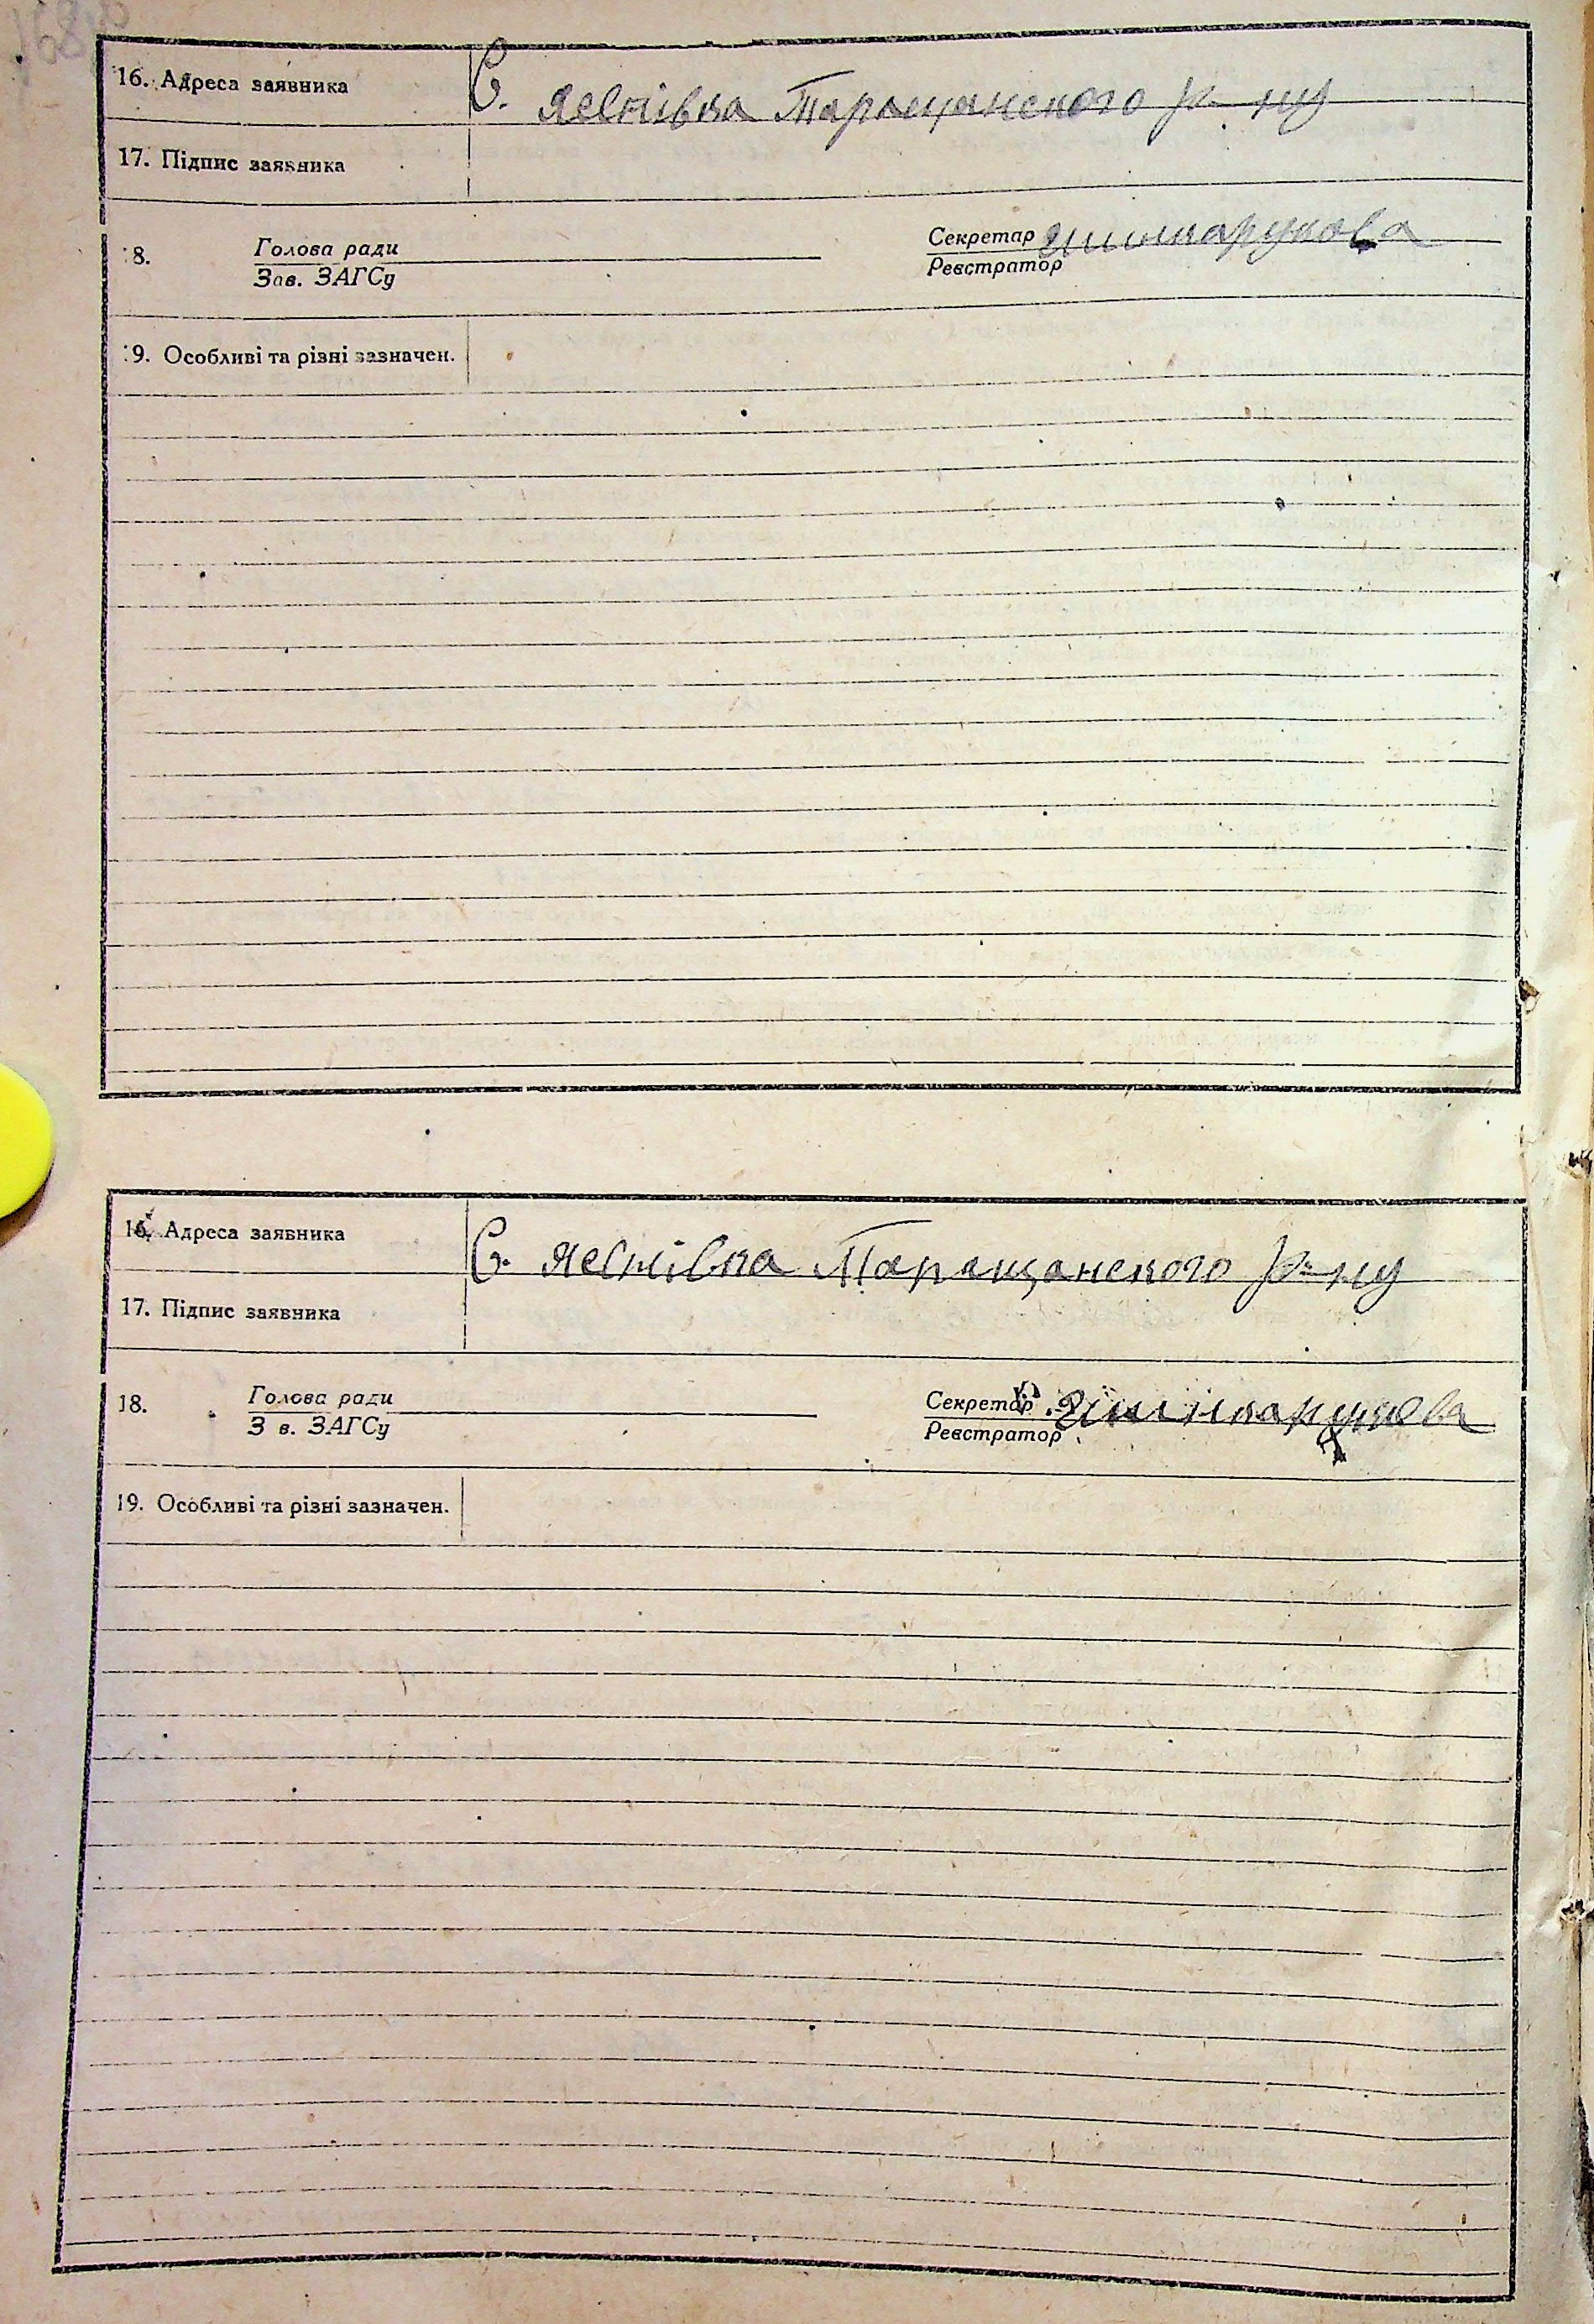 16. Адреса заявника С. Яснівка Таращанского р-ну
17. Підпис заявника
18. Голова ради Секретар
Зав. ЗАГСу Реєстратор
19. Особливі та різні зазначен.
16. Адреса заявника С. Яснівка Таращанского р-ну
17. Підпис заявника
18. Голова ради Секретар
Зав. ЗАГСу Реєстратор
19. Особливі та різні зазначен.